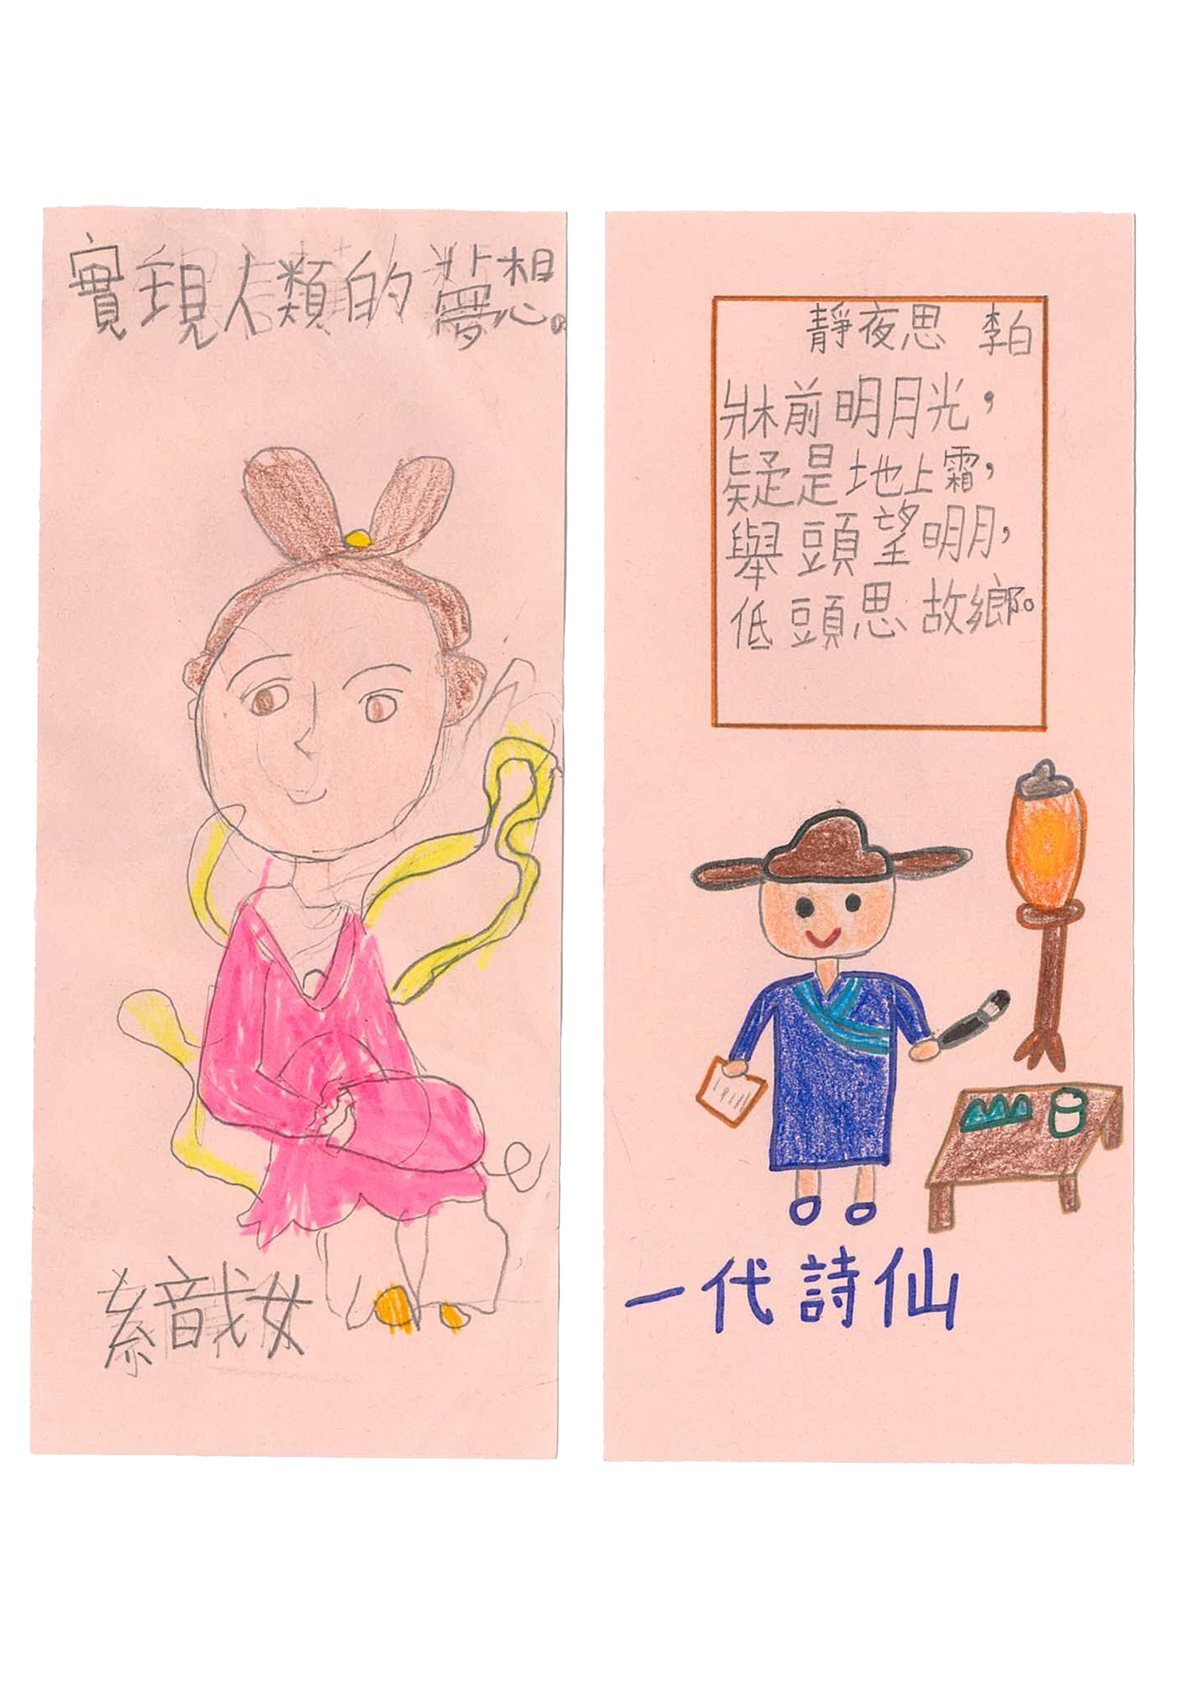 實現人類的夢想。
織女
靜夜思 李白
牀前明月光，
疑是地上霜，
舉頭望明月，
低頭思故鄉。
一代詩仙